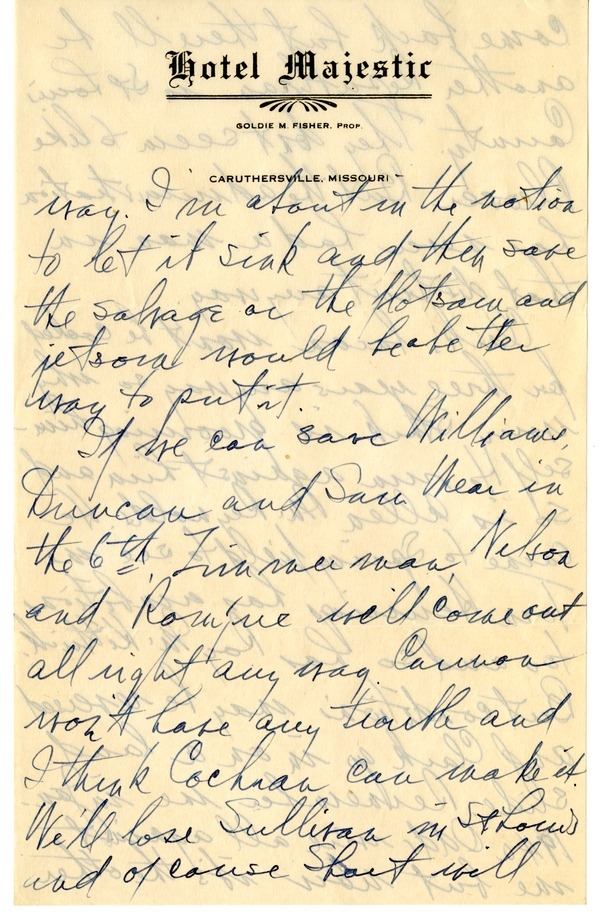 Hotel Majestic
GOLDIE M. FISHER, PROP.
CARUTHERSVILLE, MISSOURI
way. I'm about in the notion
to let it sink and then save
the salvage or the flotsam and
jetsom would be abetter
way to put it.
If we can save Williams,
Duncan and Sam Wear in
the 6th, Zimmerman, Nelson
and Romjue will come out
all right any way. Cannon
won't have any trouble and
I think Cochran can make it.
We'll lose Sullivan in St Louis
and of cause Short will